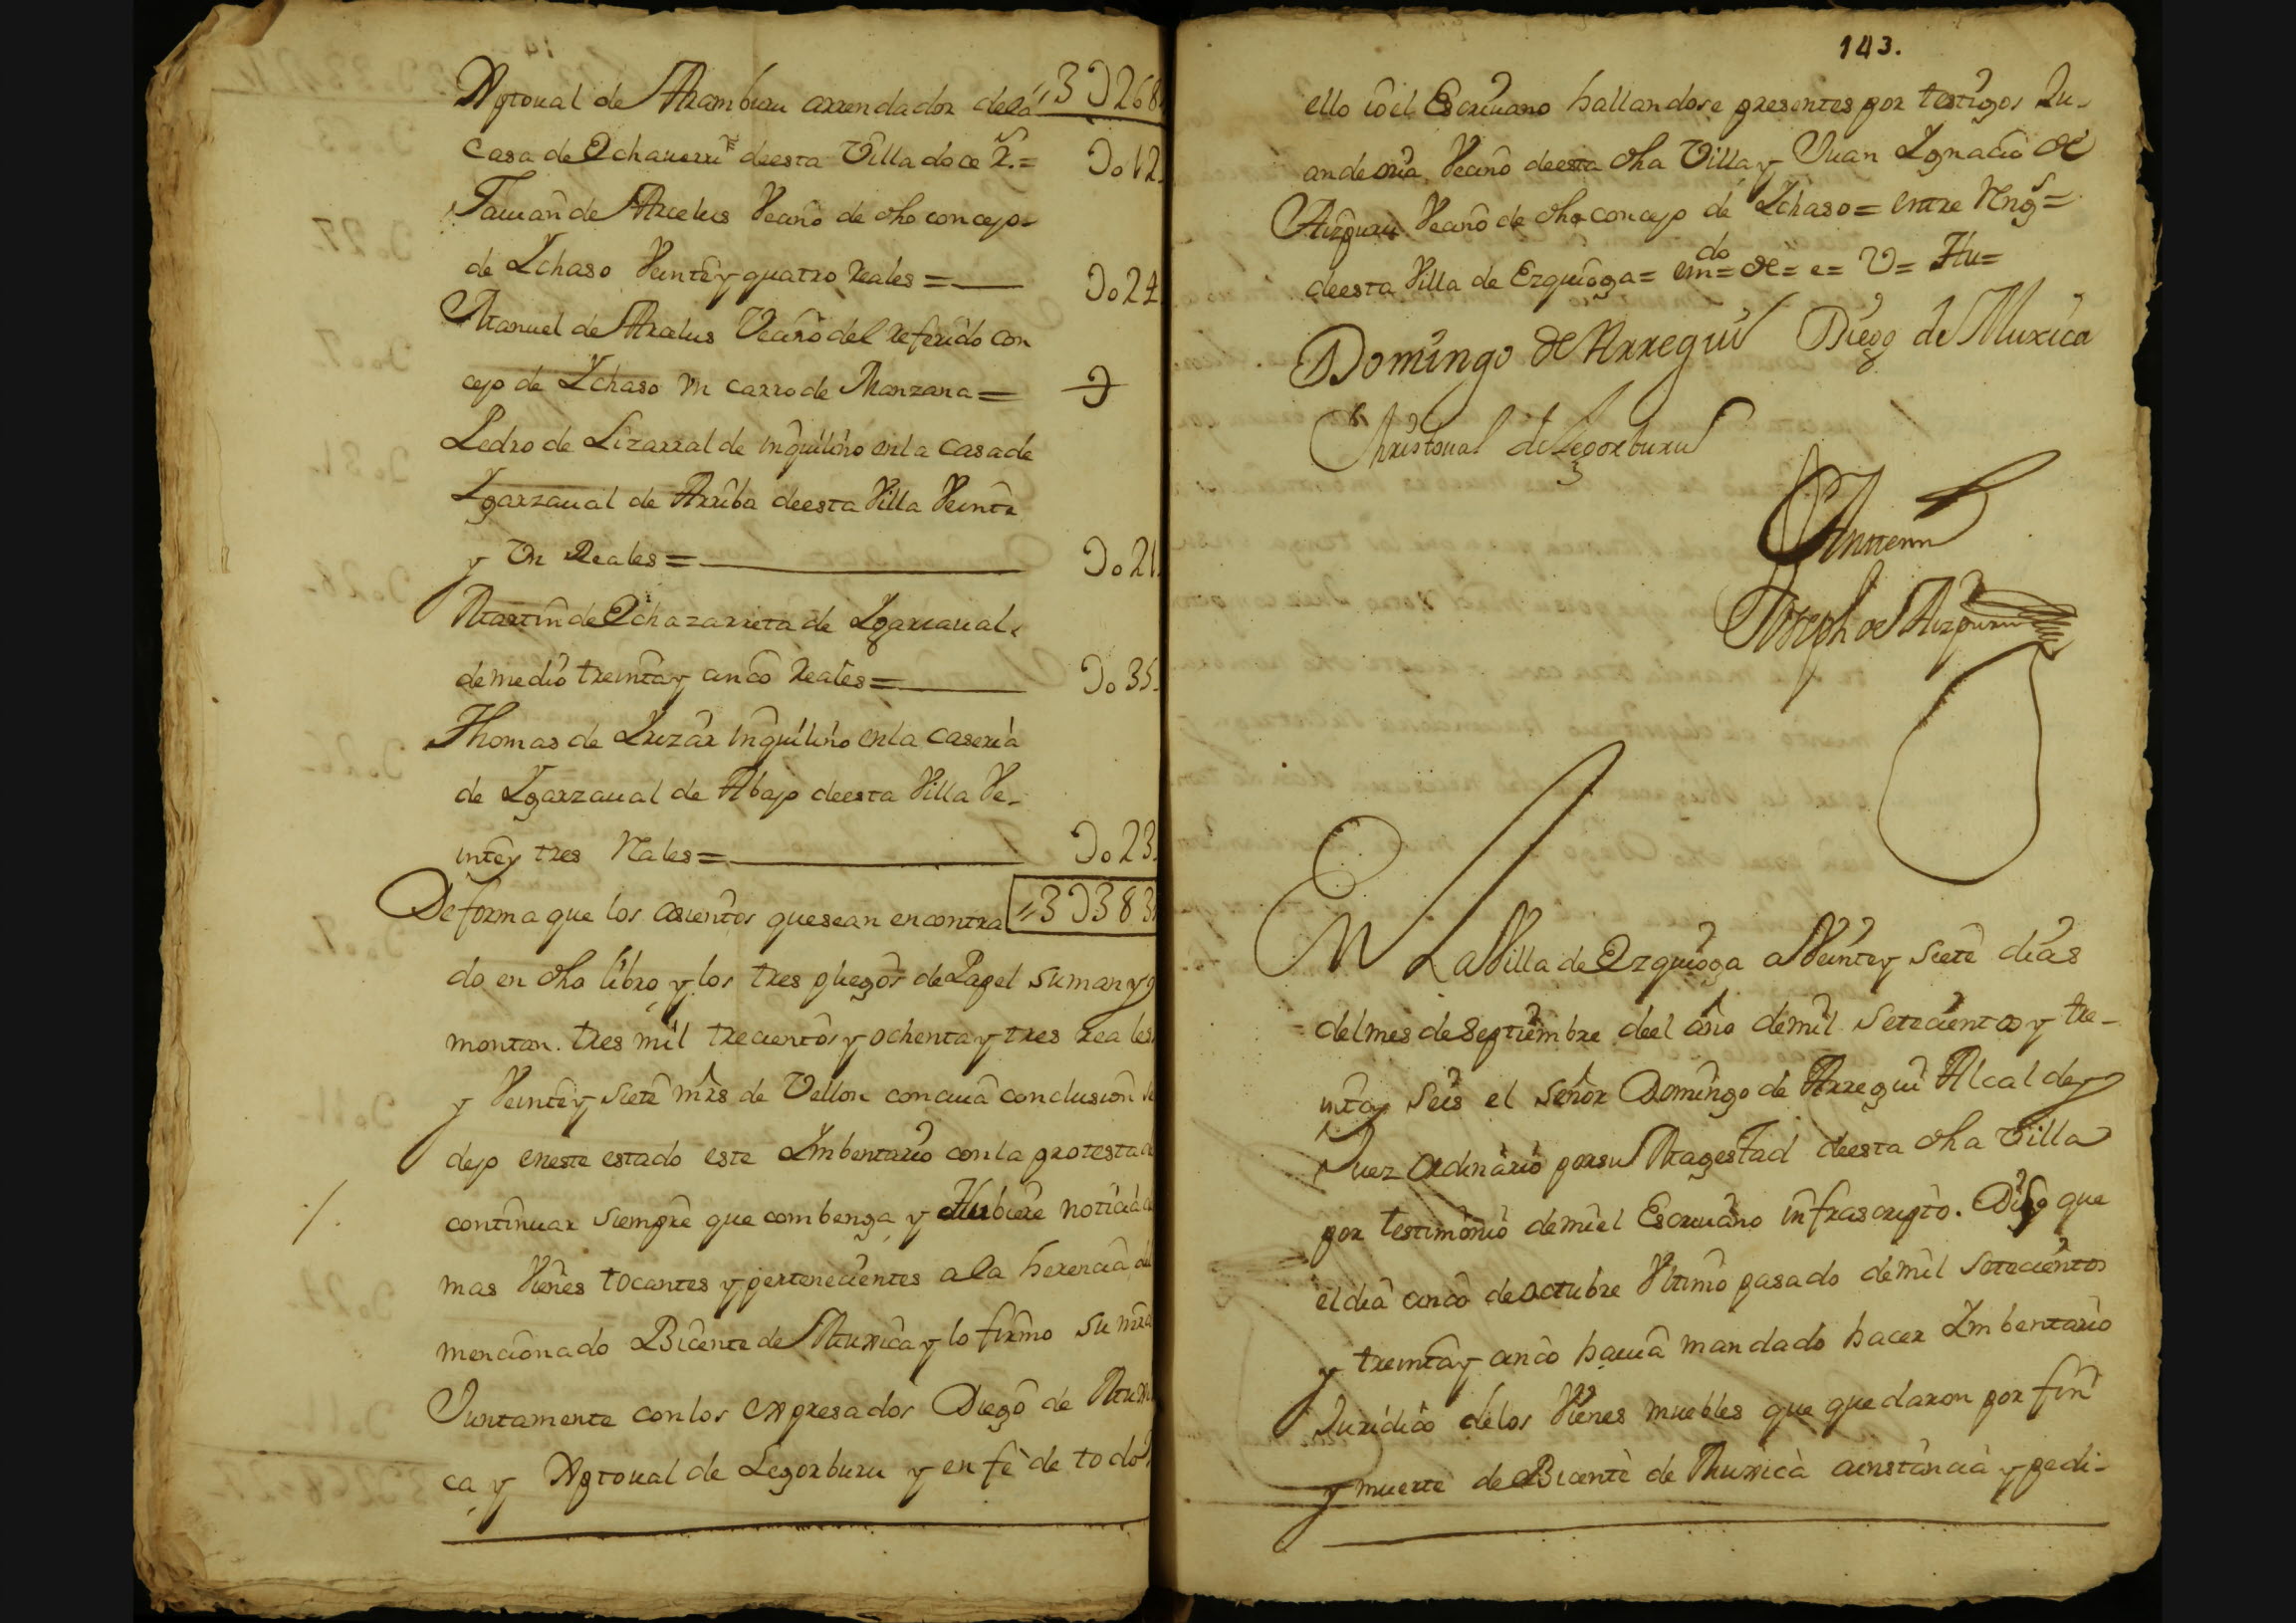 Xptoual de Aramburu arrendador dela „3U268.
Casa de Echauerri deesta Villa doce Rs.= Uo12.
Fauian de Arcelus Vecino de dho concejo
de Ichaso Veinte y quatro Reales= Uo24.
Manuel de Arcelus Vecino del referido con
cejo de Ichaso vn carro de Manzana= U
Pedro de Lizarralde inquilino en la casa de
Igarzaual de Arriba deesta Villa Veinte
y Vn Reales= Uo21.
Martin de Echazarreta de Igarzaual
de medio treinta y cinco Reales= Uo35.
Thomas de Inzar inquilino en la caseria
de Igarzaual de Abajo deesta Villa Ve-
inte y tres Reales= Uo23.
De forma que los asientos quesean encontra „3U383.
do en dho libro y los tres pliegos de Papel suman y
montan tres mil trecientos y ochenta y tres reales
y Veinte y siete mrs de Vellon con cuia conclusion se
dejo eneste estado este Imbentario con la protesta de
/. continuar siempre que combenga y Hubiere noticia de
mas Vienes tocantes y pertenecientes a la herencia del
mencionado Bicente de Muxica y lo firmo su mrd
Juntamente con los expresados Diego de Muxi
ca y Xptoual de Legorburu y en fe de todo
143.
ello io el Escriuano hallandose presentes por testigos Ju-
an de oria Vecino deesta dha Villa y Juan Ignacio de
Aizpuru Vecino de dho concejo de Ichaso= entre Rengs=
deesta Villa de Ezquioga= emdo= de= e= V= Hu=
Domingo de Arregui Diego de Muxica
Christoual de Legorburu
Antemi
Joseph de Aizpuru
EN La Villa de Ezquioga a Veinte y siete dias
del mes de septiembre deel año de mil setecientos y tre-
inta y seis el señor Domingo de Arregui Alcalde y
Juez ordinario por su Magestad deesta dha Villa
por testimonio de mi el Escriuano infrascripto. Dijo que
el dia cinco de octubre Vltimo pasado de mil setecientos
y treinta y cinco hauia mandado hacer Imbentario
Juridico de los Vienes muebles que quedaron por fin
y muerte de Bicente de Muxica a instancia y pedi-